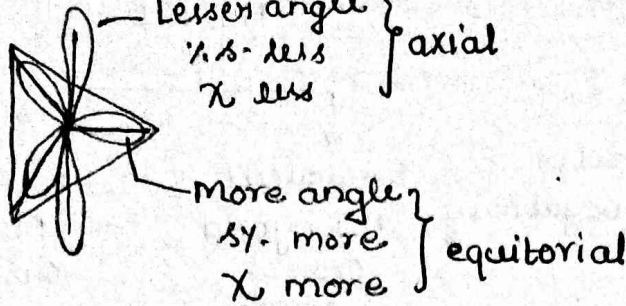 Lesser angle
%s - less
χ less
axial
more angle
s%. more
χ more
equitorial